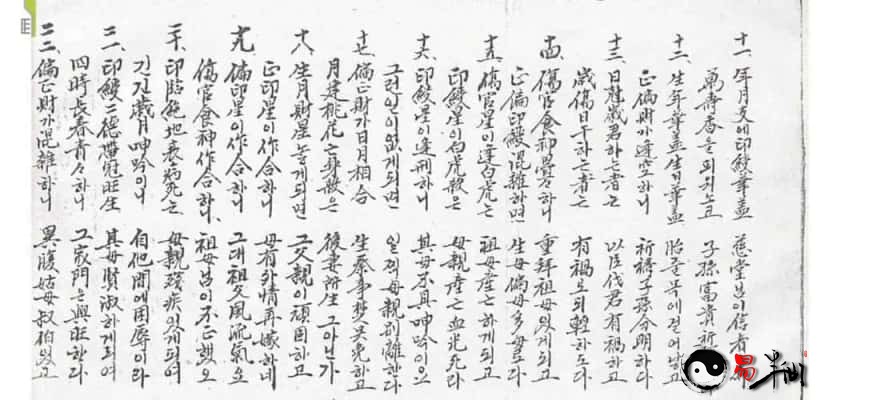 十一. 年月支에 印綬華盖 慈堂님이 信者
萬壽香을 피워노고 子孫富貴祈
十二. 生年華盖生日華盖 胎줄목에걸어났고
正偏財가逢空하니 祈禱子孫分明하다
十三. 日 歲君하는者는 以臣伐君有禍하고
歲傷日干하는者는 有禍로되輕하도다
十四. 傷官食神疊々하니 重拜祖母있게되고
正偏印綬混雜하면 生母偏母多母로다
十五. 傷官星이逢白虎는 祖母産亡하게되고
印綬星이白虎殺은 母親産亡血光死라
十六. 印綬星이逢刑하니 其母不具呻吟이오
그런일이없게되면 일찍母親別離한다
十七. 偏正財가日月相合 生 하고
月逢桃花亡身殺은 後妻所生그아닌가
十八. 生月財星놓게되면 그父親이頑固하고
正印星이作合하니 母有外情再嫁하네
十九. 偏印星이作合하니 그대祖父風流氣요
傷官食神作合하니 祖母님이不正했오
二十. 印臨絶地衰病死는 母親殘疾있게되며
긴긴歲月呻吟이니 自他間에困辱이라
二一. 印綬二德帶冠旺生 其母賢淑하게되며
四時長春靑々하니 그家門은興旺한다
二二. 偏正財가混雜하니 異腹姑母叔伯있고
易半仙